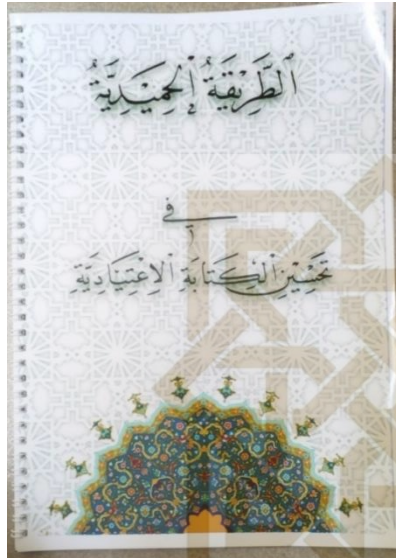 الطَّرِيْقَةُ الْحَمِيْدِيَّةُ
في
تَحْسِيْنِ الْكِتَابَةِ الْاِعْتِيَادِيَّةِ